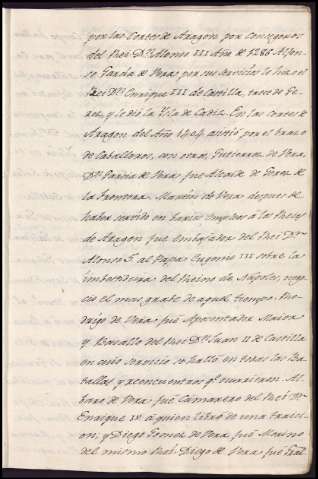 por las Cortes de Aragon por consegeros
del Rei Dn. Alonso III Año de 1286 Alfon-
so Garcia de Vera, por sus servicios le hizo el
Rei Dn. Enrique III de Castilla, de Je-
rez, y le dió la Vila de Cadiz. En las Cortes de
Aragon del Año 1404 asistió por el brazo
de Caballeros, con otros, Gutierrez de Vera
Dn. Garcia de Vera fue Alcaide de Jerez de
la frontera. Martin de Vera despues de
haber servido en barios empleos á los Reyes
de Aragon fue Embajador del Rei Dn.
Alonso 5. al Papa Eugenio III sobre la
imbestidura del Reino de Nápoles, nego-
cio el mas grabe de aquel tiempo. Ro-
drigo de Vera fue Aposentador Maior
y Basallo del Rei Dn. Juan II de Castilla
en cuio servicio se halló en todas las Ba-
tallas, y rencuentros qe. ocurrieron. Al-
baro de Vera fue Camarero del Rei Dn.
Enrique IV á quien libró de una traicio-
on, y Diego Gomez de Vera fue Merino
del mismo Rei. Diego de Vera fue